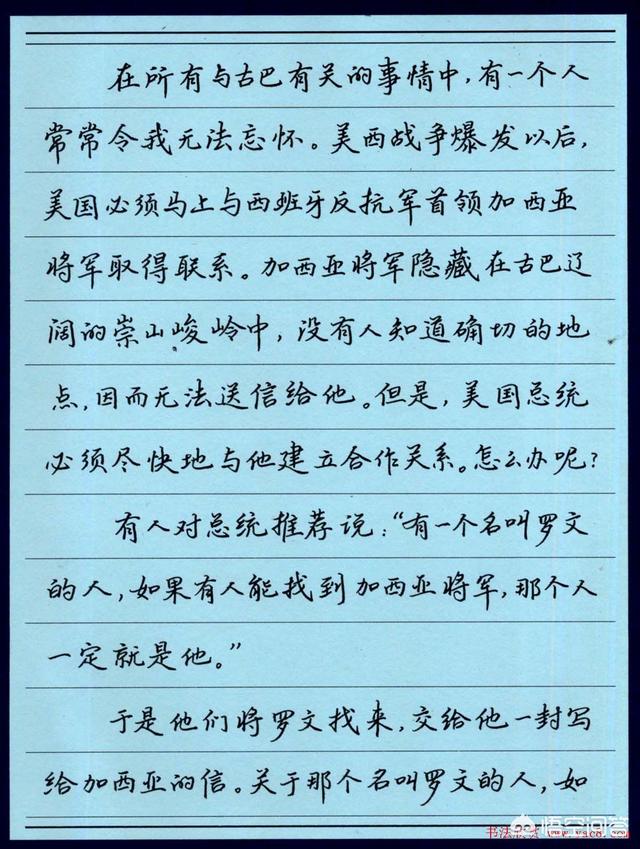 在所有与古巴有关的事情中,有一个人
常常令我无法忘怀。美西战争爆发以后,
美国必须马上与西班牙反抗军首领加西亚
将军取得联系。加西亚将军隐藏在古巴辽
阔的崇山峻岭中,没有人知道确切的地
点,因而无法送信给他。但是,美国总统
必须尽快地与他建立合作关系。怎么办呢?
有人对总统推荐说:“有一个名叫罗文
的人,如果有人能找到加西亚将军,那个人
一定就是他。”
于是他们将罗文找来,交给他一封写
给加西亚的信。关于那个名叫罗文的人,如
悟空问答